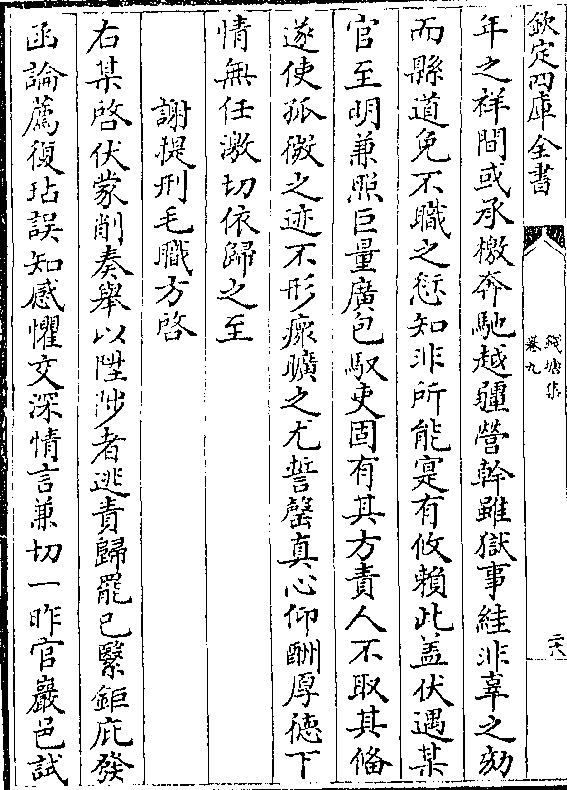 欽定四庫全書
錢塘集
卷九
二六
年之祥間或承檄奔馳越疆營幹雖獄事絓非辜之劾
而縣道免不職之愆知非所能寔有攸賴此蓋伏遇某
官至明兼照巨量廣包馭吏固有其方責人不取其備
遂使孤微之迹不形瘝曠之尤誓罄真心仰酬厚德下
情無任激切依歸之至
謝提刑毛職方啓
右某啓伏蒙削奏舉以陞陟者逃責歸罷已繄鉅庇發
函論薦復玷誤知感懼交深情言兼切一昨官巖邑試